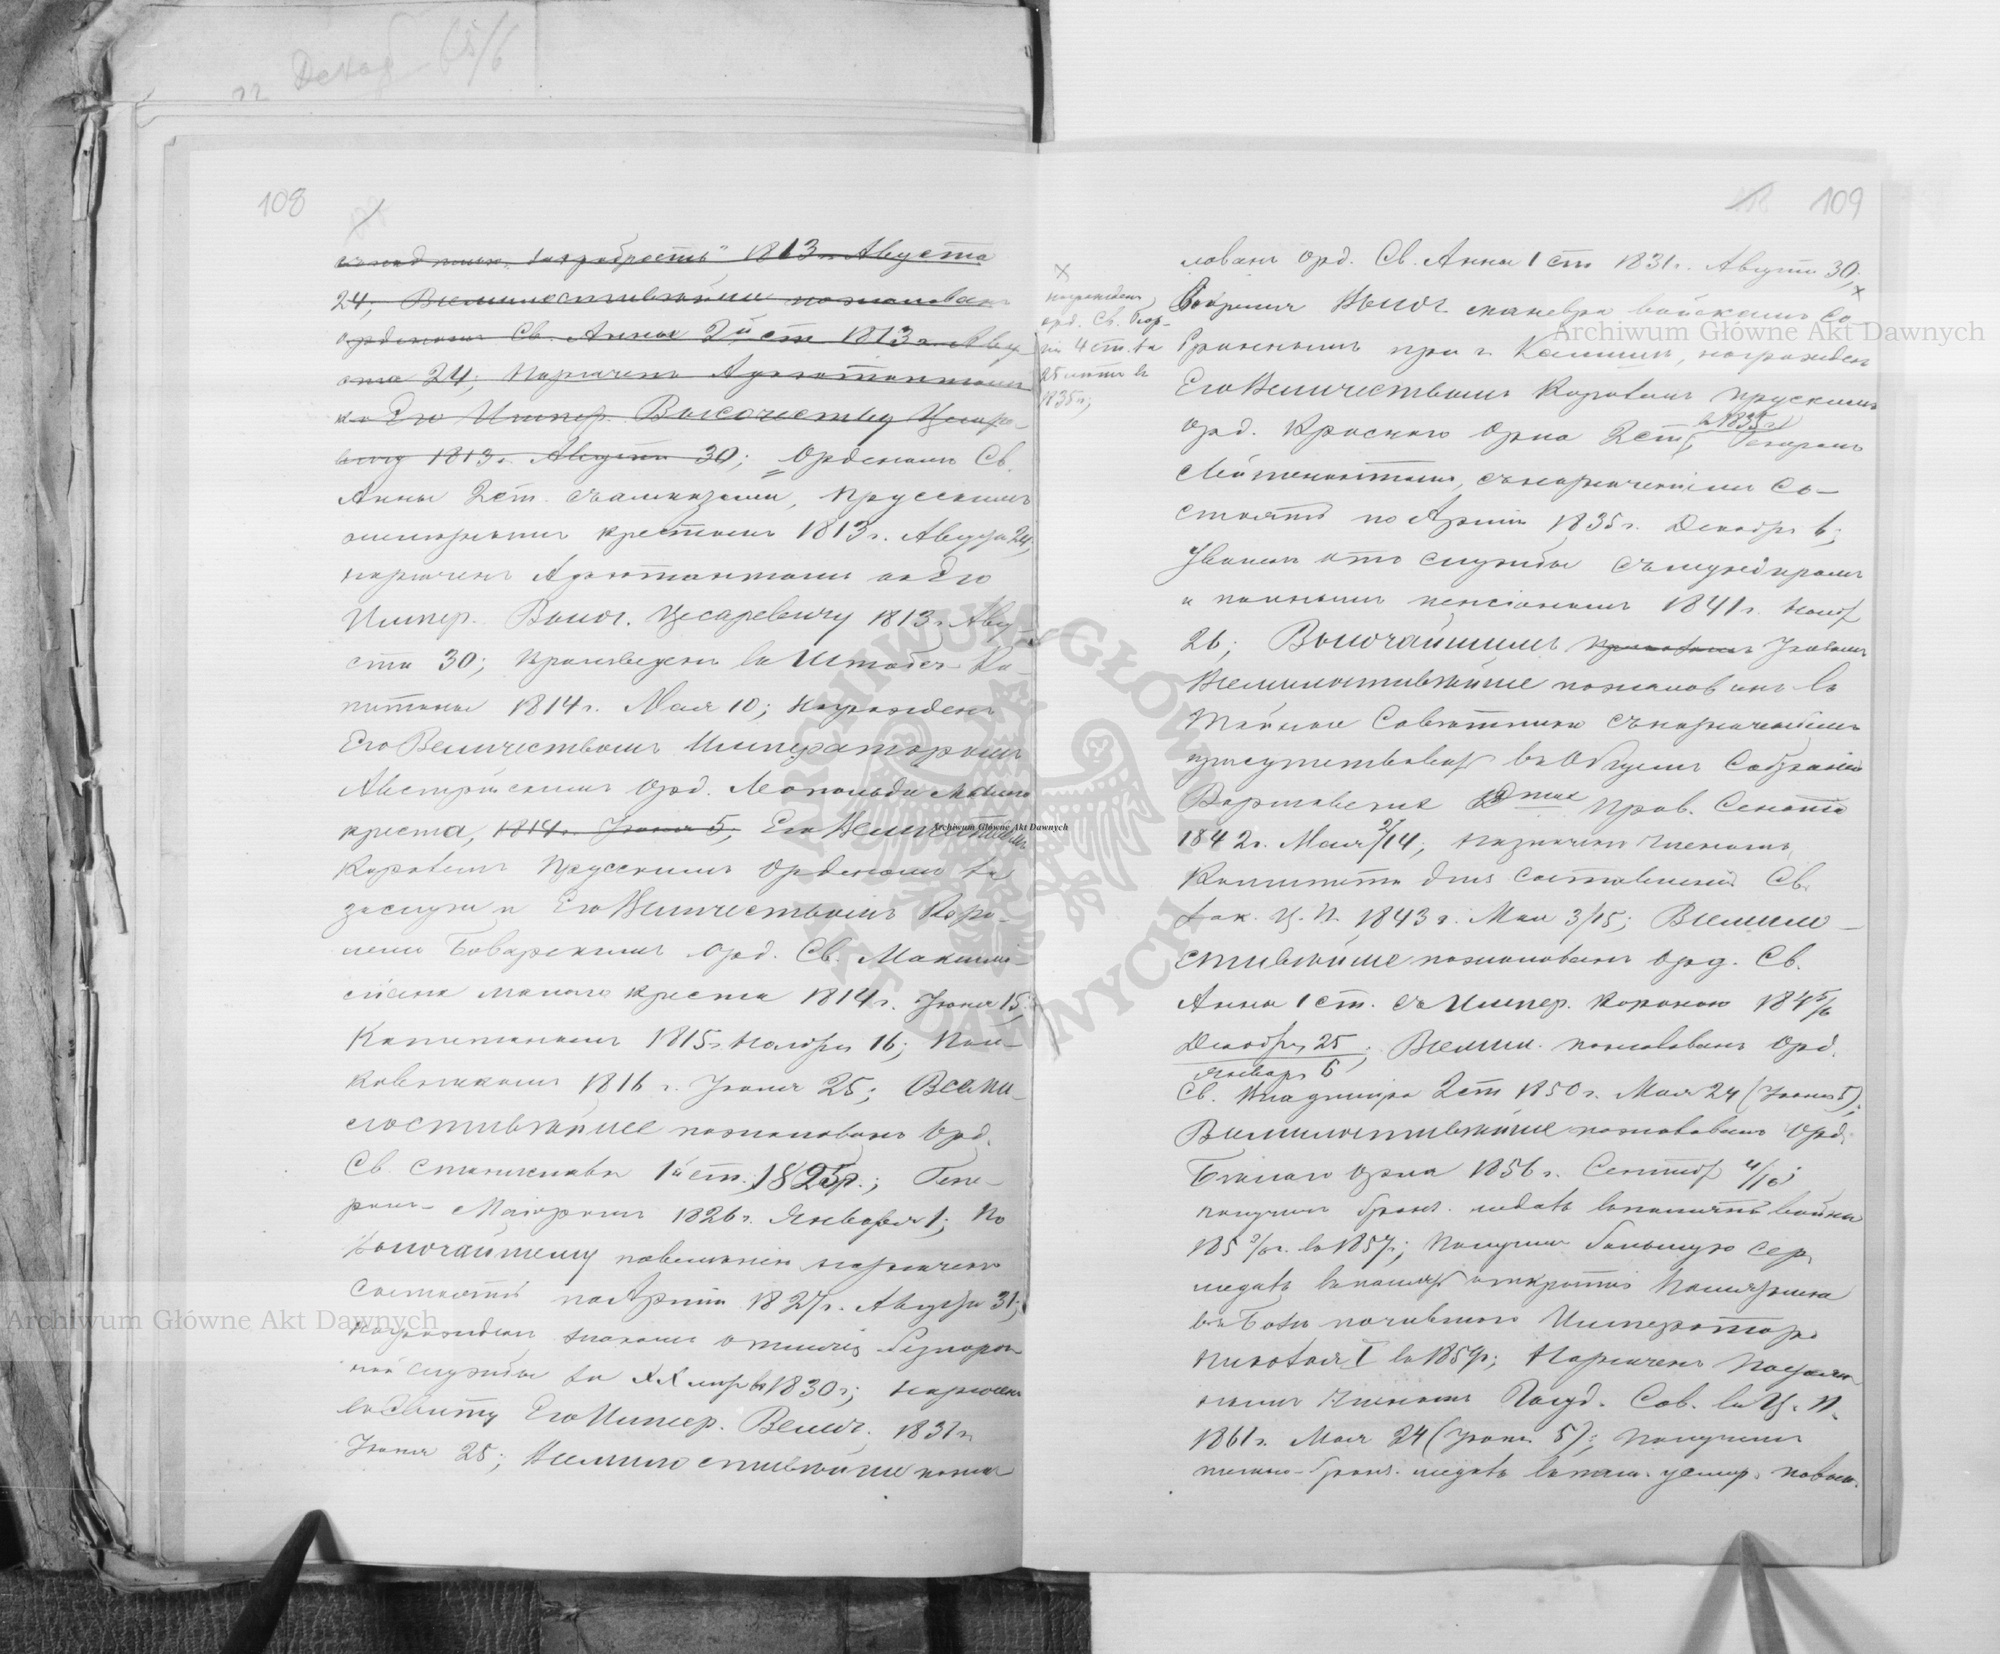 12 Декаб 65/6
108
съ надписью „за храбрость" 1813 г. Августа
24; Всемилостивѣйше пожалованъ
орденомъ Св. Анны 2й ст 1813 г. Авгу-
ста 24; Назначенъ Адъютантомъ
къ Его Импер. Высочеству Цесаре-
вичу 1813 г. Августа 30; Орденомъ Св.
Анны 2 ст. съ алмазами, Прусскимъ
железнымъ крестомъ 1813 г. Августа 24;
назначенъ Адъютантомъ къ Его
Импер. Высоч. Цесаревичу 1813 г. Авгу-
ста 30; Произведенъ въ Штабсъ-Ка-
питаны 1814 г. Мая 10; Награжденъ
Его Величествомъ Императоромъ
Австрійскимъ Орд. Леопольда малаго
креста, 1814 г. Іюня 5; Его Величествомъ
Королемъ Прусскимъ Орденомъ за
заслуги и Его Величествомъ Коро-
лемъ Баварскимъ Орд. Св. Максими-
ліана малаго креста 1814 г. Іюня 15;
Капитаномъ 1815 г. Ноября 16; Пол-
ковникомъ 1816 г. Іюня 25; Всеми-
лостивѣйше пожалованъ Орд.
Св. Станислава 1й ст. 1825 г.; Гене-
ралъ-Маіоромъ 1826 г. Января 1; По
Высочайшему повелѣнію назначенъ
состоять по Арміи 1827 г. Августа 31;
награжденъ знакомъ отличія безпороч-
ной службы за XX лѣтъ въ 1830 г.; назначенъ
въ Свиту Его Импер. Велич. 1831 г.
Іюня 25; Всемилостивѣйше пожа-
109
лованъ Орд. Св. Анны 1 ст 1831 г. Августа 30;
×
награжденъ
орд. Св. Геор-
гія 4 ст. за
25 лѣтъ въ
1835 г.;
Во время Высоч. маневра войскамъ со-
браннымъ при г. Калишѣ, награжденъ
Его Величествомъ Королемъ Прусскимъ
орд. Краснаго Орла 2 ст, въ 1835 г.; Генералъ
Лейтенантомъ, съ назначеніемъ со-
стоять по Арміи 1835 г. Декабр. 6;
Уволенъ отъ службы съ мундиромъ
и полнымъ пенсіономъ 1841 г. Нояб.
26; Высочайшимъ Указомъ
Всемилостивѣйше пожалованъ въ
Тайные Совѣтники съ назначеніемъ
присутствовать въ Общемъ Собраніи
Варшавскихъ Д-товъ Прав. Сената
1842 г. Мая 2/14; Назначенъ Членомъ
Комитета для составленія Св.
Зак. Ц. П. 1843 г. Мая 3/15; Всемило-
стивѣйше пожалованъ Орд. Св.
Анны 1 ст. съ Импер. Короною 1845/6
Декабря 25 / Января 6; Всемил. пожалованъ Орд.
Св. Владиміра 2 ст 1850 г. Мая 24 (Іюня 5);
Всемилостивѣйше пожалованъ Орд.
Бѣлаго Орла 1856 г. Сентяб. 4/16;
получилъ бронз. медаль въ память войны
185 3/6 г. въ 1857 г.; Получилъ большую сер.
медаль въ память открытія Памятника
въ Бозѣ почившаго Императора
Николая I въ 1859 г.; Назначенъ Посто-
яннымъ Членомъ Госуд. Сов. въ Ц. П.
1861 г. Мая 24 (Іюня 5); Получилъ
темно-бронз. медаль въ пам. усмир. польск.
Archiwum Główne Akt Dawnych
Archiwum Główne Akt Dawnych
Archiwum Główne Akt Dawnych
ARCHIWUM GŁÓWNE AKT DAWNYCH